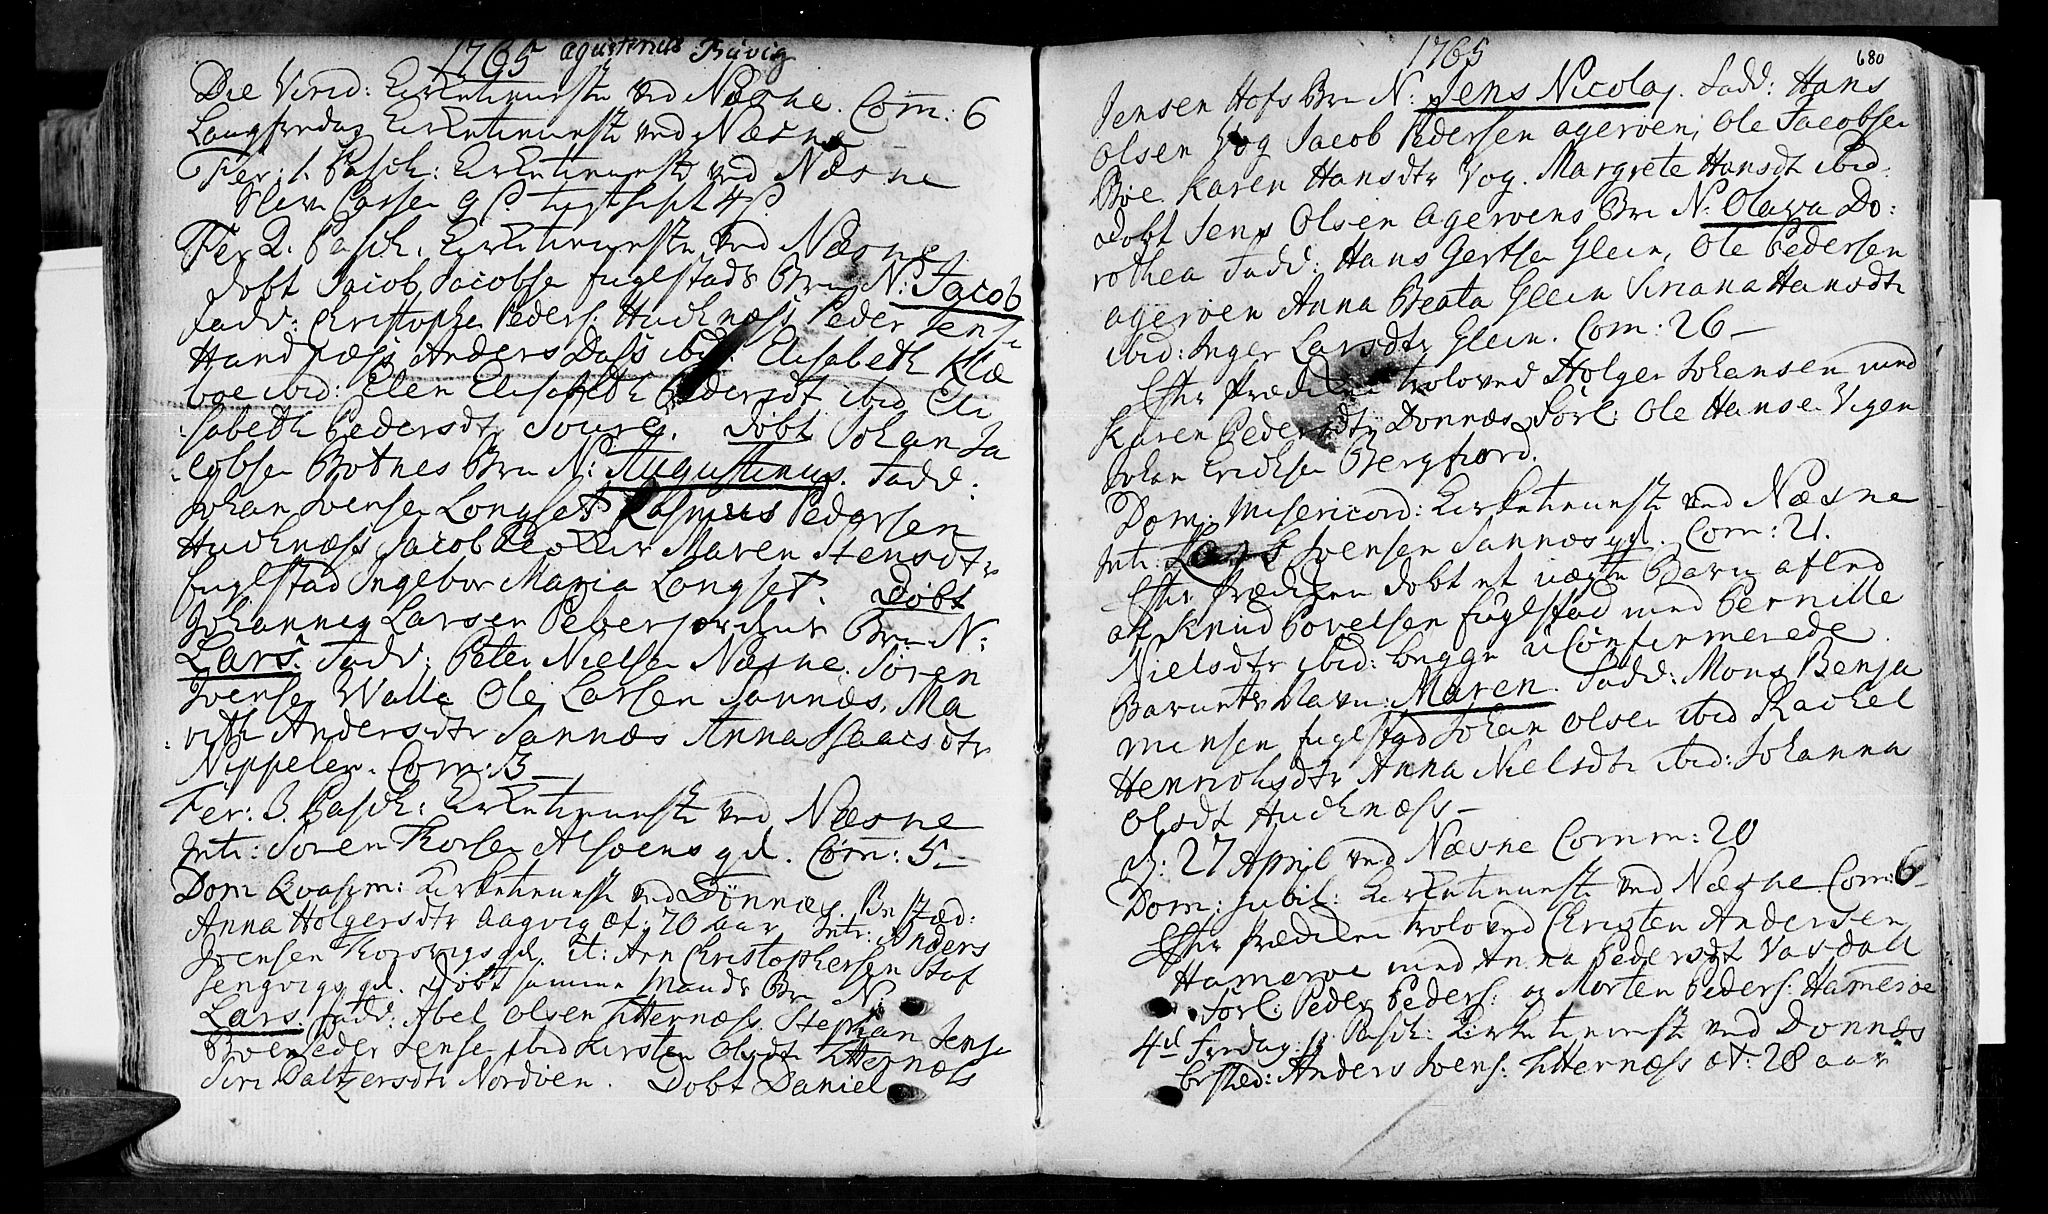 1765 Agustinus Tüvig
Die Virid: Kirketieneste ved Næsne. Com: 6
Langfredag Kirketieneste ved Næsne
Fer: 1. Pasch: Kirketieneste ved Næsne
Fer 2. Pasch. Kirketieneste ved Næsne
Döbt Jacob Jacobse Fuglstads Brn N: Jacob
Fadd: Christopher Peders: Huchnæss Peder Jense
Handnæss Anders Dass ibid: Elisabeth Klæ
boe ibid: Elen Elisabeth Pedersdt ibid Eli
sabeth Pedersdtr Döbt Johan Ja
cobsen Botnes Brn N: Augustinus. Fadd:
Johan Ivensen Longset Rasmus Pedersen
Huchnæss Jacob Maren Stensdtr
Fuglstad Ingebor Maria Longset. Döbt
Johannes Larsen Brn N:
Lars. Fadd: Peter Nielsen Næsne. Sören
Ivensen Walle Ole Larsen Sannæs, Ma
rith Andersdtr Sannæs Anna Isaacsdtr
Nippelen. Com: 13
Fer: 3. Pasch: Kirketieneste ved Næsne
Intr: Soren Thorsen Alsoens qd. Com: 5
Dom Qvasim: Kirketieneste ved Dönnæs. Bested:
Anna Holgersdtr Aagvig æt: 70 aar Intr: Anders
Ivensen qd. It: Arn Christophersen Staf
sengvigs qd. Döbt samme Mands Brn N:
Lars. Fadd: Abel Olsen Titternæss. Stephan Jense
Peder Jense ibid Kirsten Olsdtr Titternæs
Siri Baltzersdtr Nordöen. Döbt Daniel
1765
680
Jensen Hofs Brn N: Jens Nicolaj. Fadd: Hans
Olsen Vog Jacob Pedersen Ageröen, Ole Jacobsen
Böe Karen Hansdtr Vog. Margrete Hansdt ibid:
Döbt Jens Olsen Ageröens Brn N: Olava Do:
rothea Fadd: Hans Gertsen Glein, Ole Pedersen
Ageröen Anna Beata Glein Siriana Hansdtr
ibid: Inger Larsdtr Glein. Com: 26
Efter Prædiken troloved Holger Johansen med
Karen Pedersdtr Dönnæs Forl: Ole Hansen Vigen
Johan Erichsen Bergfiord.
Dom: Misericord: Kirketieneste ved Næsne
Intr: Lars Ivensen Sannæs qd. Com: 21.
Efter Prædiken döbt et uægte Barn afled
af Knud Povelsen Fuglstad med Pernille
Nielsdtr ibid: begge uConfirmerede.
Barnets Navn: Maren. Fadd: Mons Benja
minsen Fuglstad Johan Olsen ibid Rachel
Henrichsdtr Anna Nielsdtr ibid: Johanna
Olsdt Huchnæss
d: 27 April ved Næsne Comm: 20
Dom: Jubil: Kirketieneste ved Næsne Com: 6
Efter Prædiken troloved Christen Andersen
Hameröe med Anna Pedersdt Vasdall
Forl: Peder Peders: og Morten Peders: Hameröe
4d Fredag p Pasch: Kirketieneste ved Dönnæs
bested: Anders Ivens: Titternæss æt: 28 aar